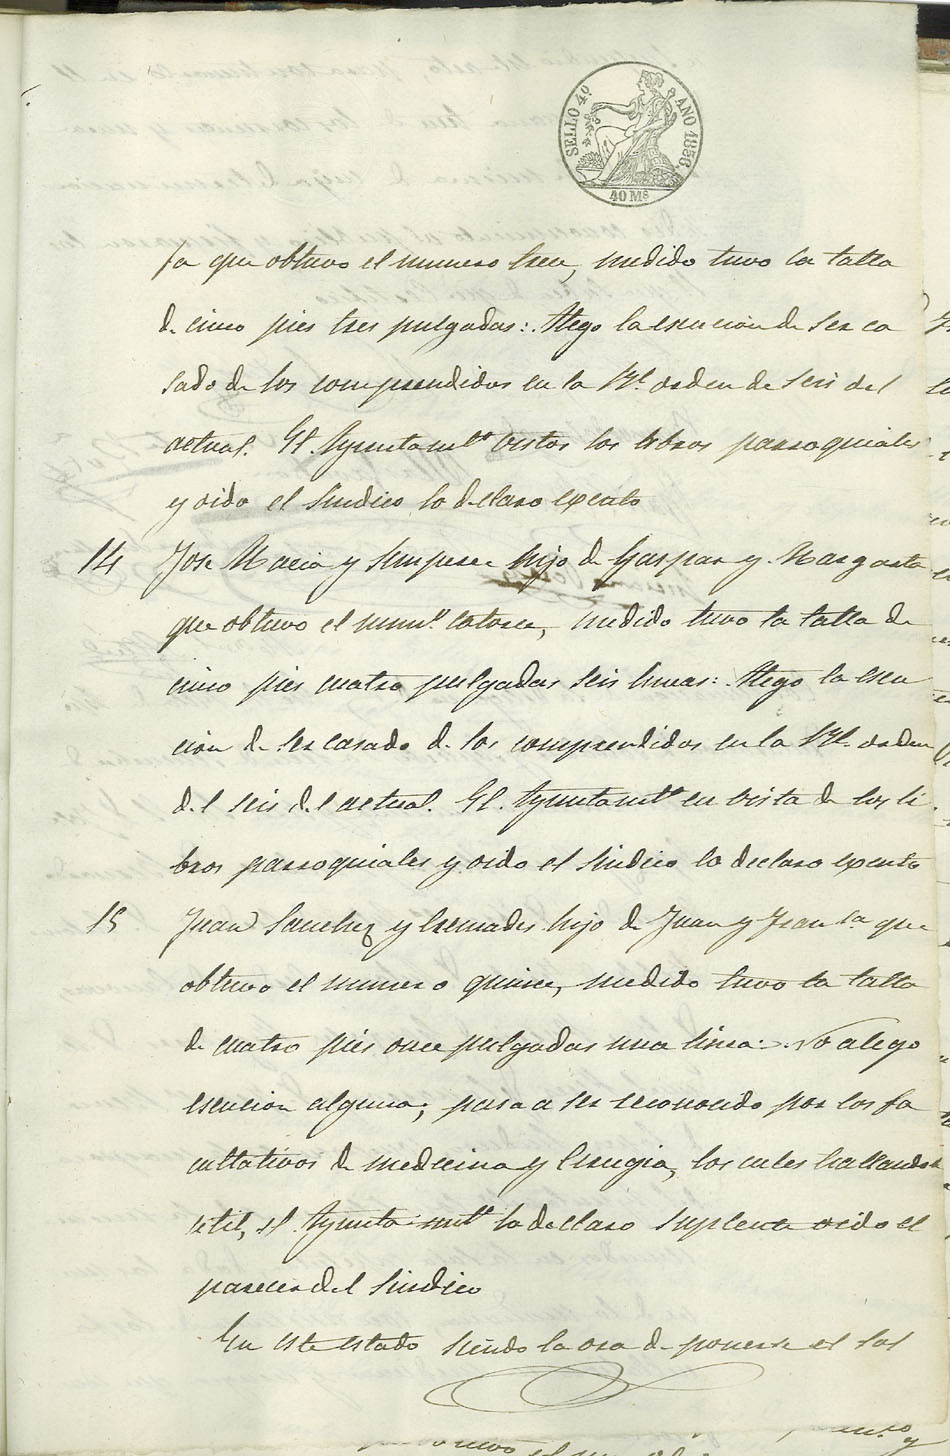 SELLO 4º AÑO 1856.
40 Ms
fa que obtuvo el numero trece, medido tuvo la talla
de cinco pies tres pulgadas: Alego la esencion de ser ca
sado de los comprendidos en la Rl. orden de seis del
actual. El Ayuntamto vistos los libros parroquiales
y oido el Sindico lo declaro exento
14 Jose Macia y Sempere hijo de Gaspar y Margarita
que obtuvo el numº catorce, medido tuvo la talla de
cinco pies cuatro pulgadas seis lineas: Alego la esen
cion de ser casado de los comprendidos en la Rl. orden
del seis del actual. El Ayuntamto en vista de los li
bros parroquiales y oido el Sindico lo declaro exento
15 Juan Sanchez y hijo de Juan y Franca que
obtuvo el numero quince, medido tuvo la talla
de cuatro pies once pulgadas una linea: No alego
esencion alguna; pasa a ser reconocido por los fa
cultativos de medicina y Cirugia, los cules hallandole
util, el Ayuntamto lo declaro suplente oido el
parecer del Sindico
En este estado siendo la ora de ponerse el sol